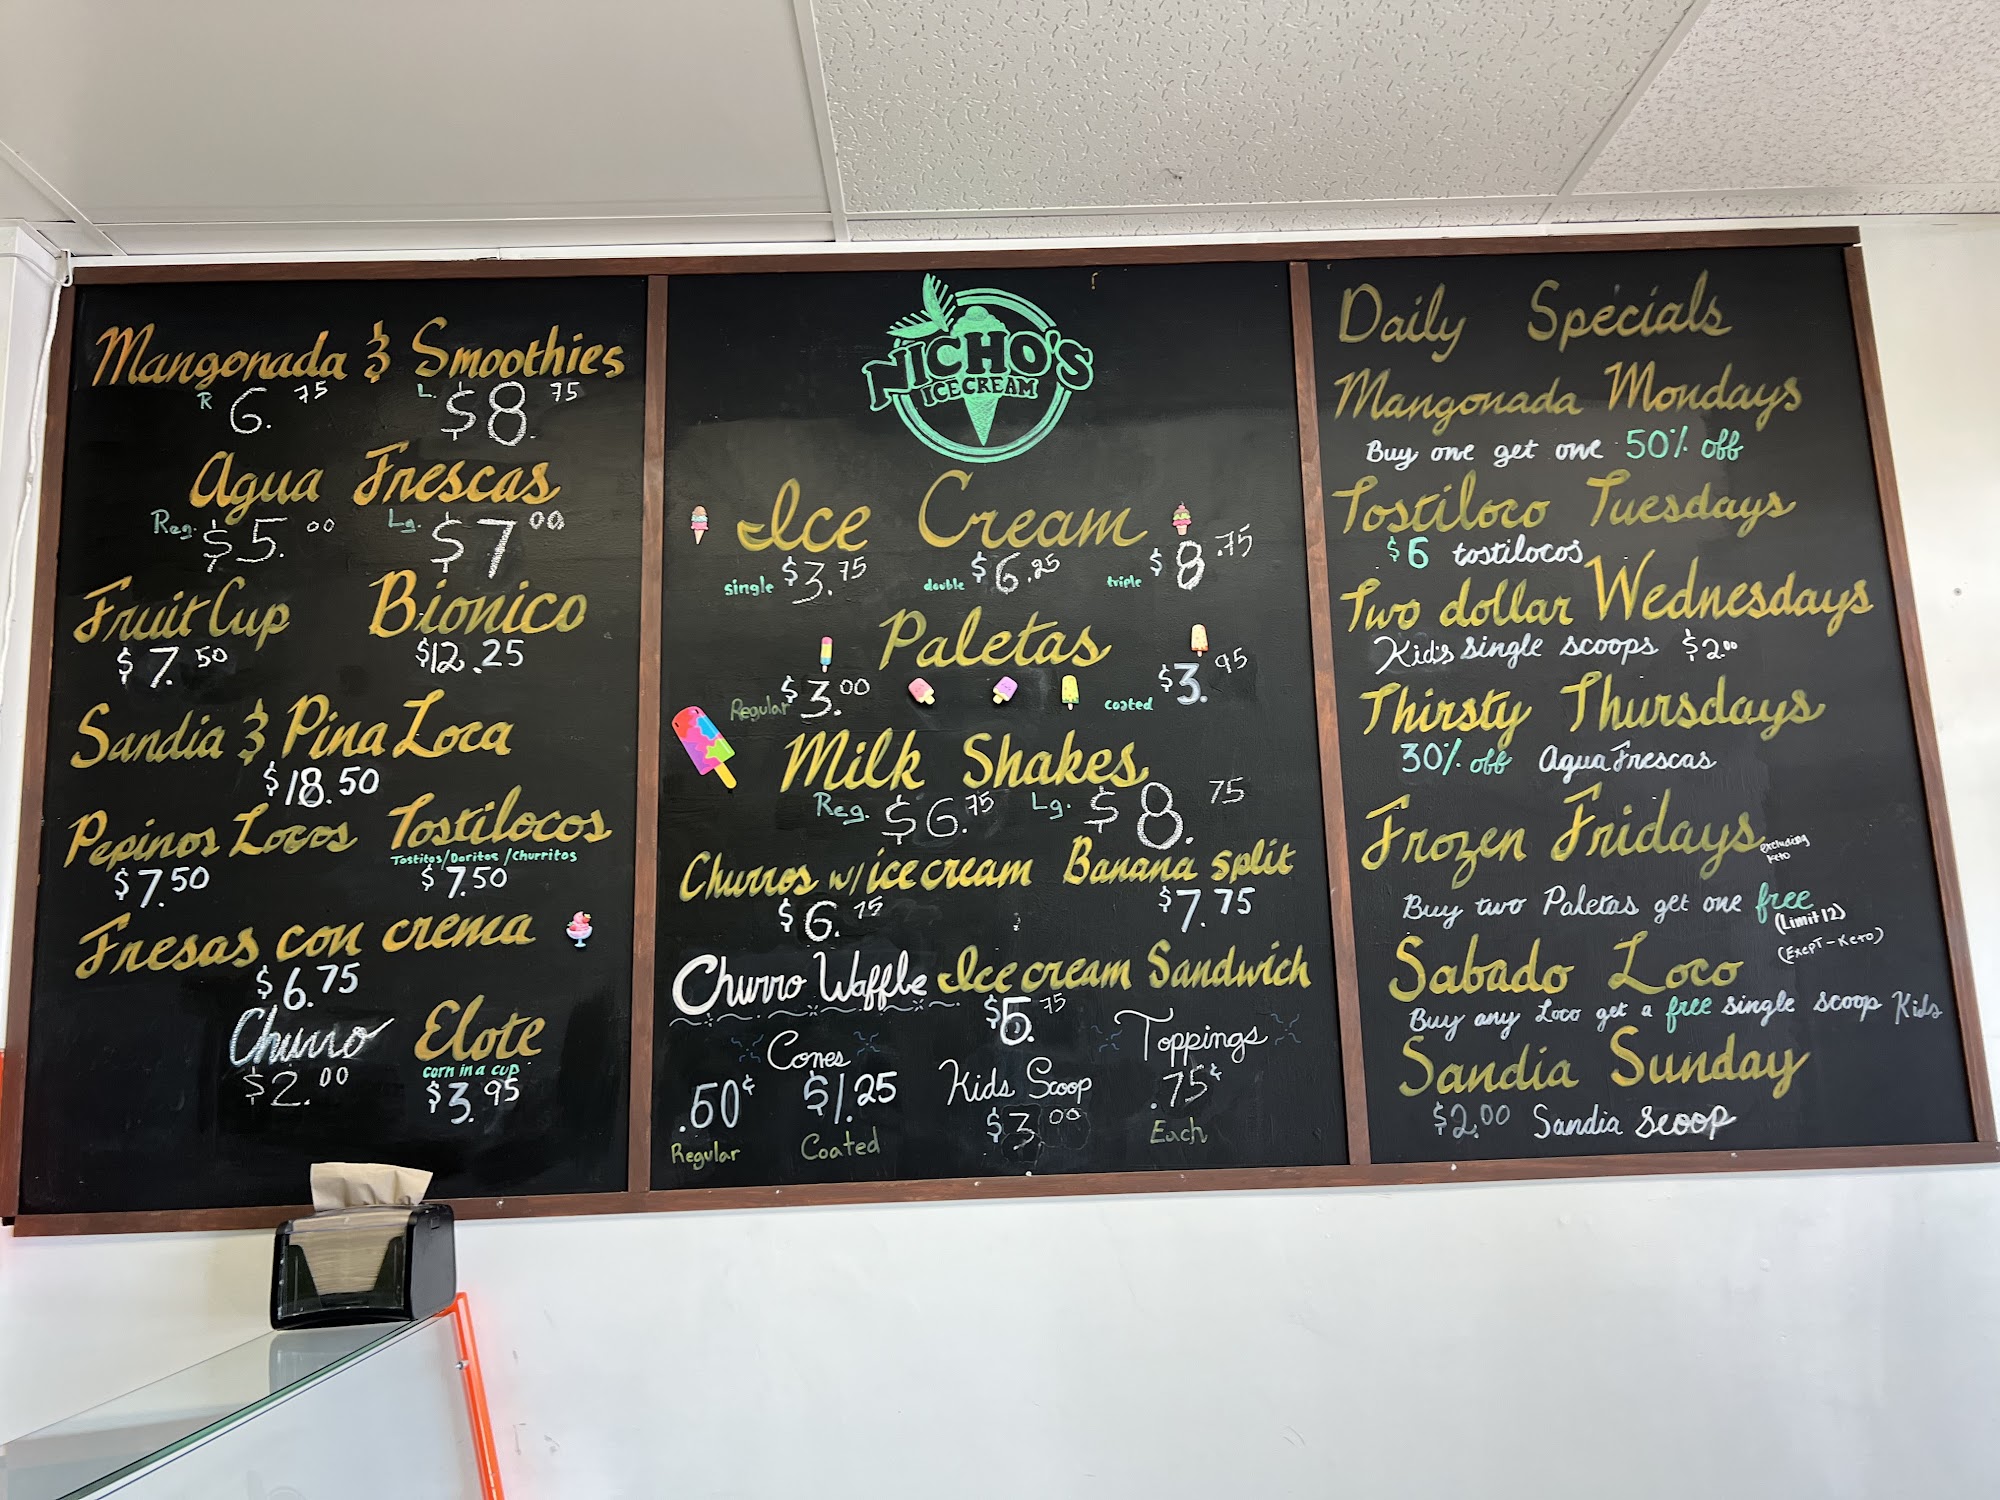 Mangonada & Smoothies
R 6.75 L. $8.75
Agua Frescas
Reg. $5.00 Lg. $7.00
Fruit Cup Bionico
$7.50 $12.25
Sandia & Pina Loca
$18.50
Pepinos Locos Tostilocos
Tostitos/Doritos/Churritos
$7.50 $7.50
Fresas con crema
$6.75
Churro Elote
corn in a cup
$2.00 $3.95
NICHO'S
ICE CREAM
Ice Cream
single $3.75 double $6.25 triple $8.75
Paletas
Regular $3.00 coated $3.95
Milk Shakes
Reg. $6.75 Lg. $8.75
Churros w/ ice cream Banana split
$6.75 $7.75
Churro Waffle Ice cream Sandwich
$5.75
Cones Kids Scoop Toppings
.60¢ $1.25 $3.00 .75¢
Regular Coated Each
Daily Specials
Mangonada Mondays
Buy one get one 50% off
Tostiloco Tuesdays
$6 tostilocos
Two dollar Wednesdays
Kid's single scoops $2.00
Thirsty Thursdays
30% off Agua Frescas
Frozen Fridays excluding
Keto
Buy two Paletas get one free
(Limit 12)
(Exept-Keto)
Sabado Loco
Buy any Loco get a free single scoop Kids
Sandia Sunday
$2.00 Sandia scoop